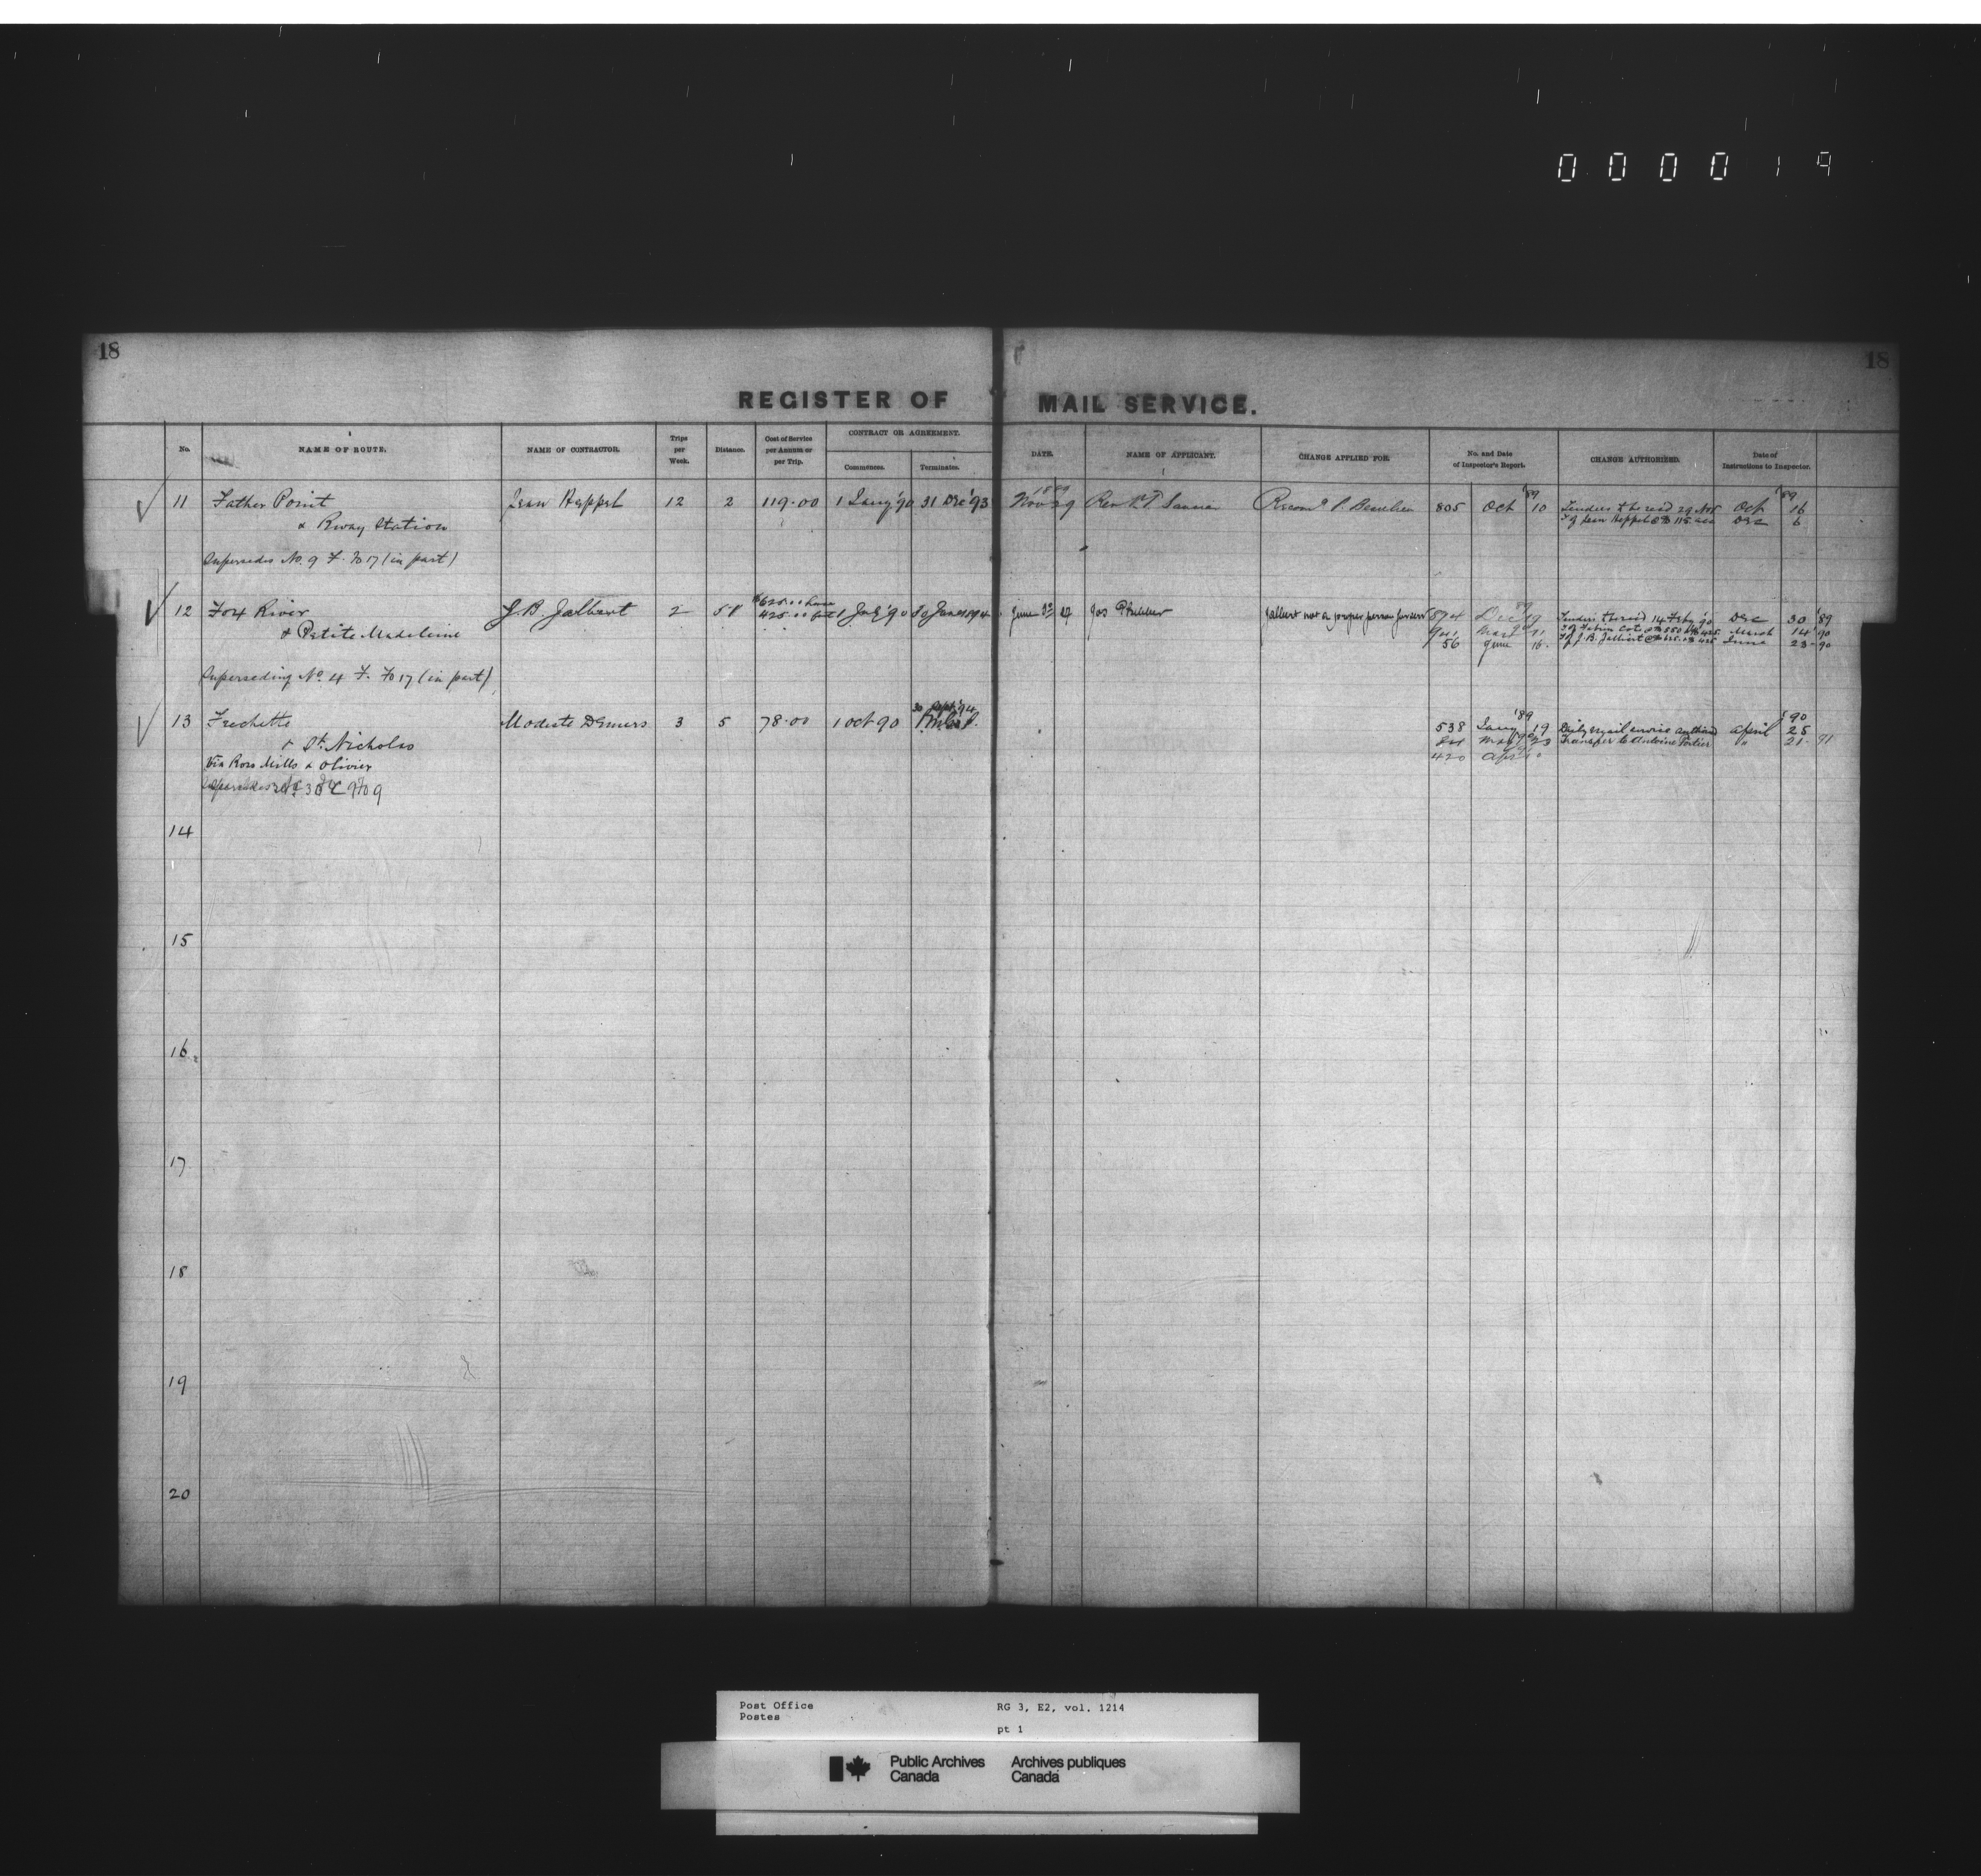 000019
18 18
REGISTER OF MAIL SERVICE.
No. NAME OF ROUTE. NAME OF CONTRACTOR. Trips per Week. Distance. Cost of Service per Annum or per Trip. CONTRACT OR AGREEMENT. Commences. Terminates. DATE. NAME OF APPLICANT. CHANGE APPLIED FOR. No. and Date of Inspector's Report. CHANGE AUTHORIZED. Date of Instructions to Inspector.
1889 '89 '89
11 Father Point Jean Heppel 12 2 119.00 1 Jany '90 31 Dec '93 Nov 29 Rev Recomd P. Beaulieu 805 Oct 10 Tenders to be recd 29 Nov Oct 16
& Rway Station Dec 6
Supersedes No. 9 F. Fo 17 (in part)
12 Fox River J.B. Jalbert 2 58 1 July '90 30 June 1894 June Jos Jalbert not a proper person 894 Dec 19 Tenders to be recd 14 Feby '90 Dec 30 '89
& Petite Madeleine 425.00 March 14 '90
56 June 16 June 23 90
Superseding No. 4 F. Fo 17 (in part)
13 Frechette Modeste Demers 3 5 78.00 1 Oct 90 30 Sept '94 538 Jany '89 19 Daily mail service April '90 25
& St. Nicholas Transfer to Antoine " 21 91
Via Ross Mills & Olivier 420 Apr
14
15
16
17
18
19
20
Post Office RG 3, E2, vol. 1214
Postes
pt 1
Public Archives Archives publiques
Canada Canada